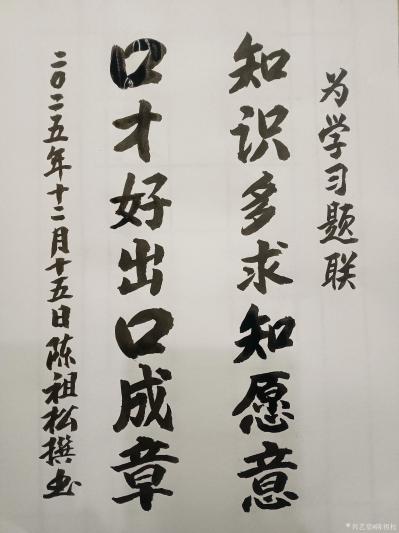 为学习题联
知识多求知愿意
口才好出口成章
二〇二五年十二月十五日陈祖松撰书